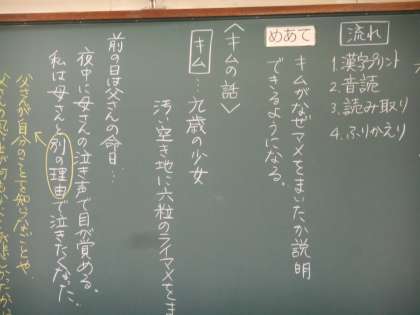 流れ
1.漢字プリント
2.音読
3.読み取り
4.ふりかえり
めあて
キムがなぜマメをまいたか説明
できるようになる。
〈キムの話〉
キム…九歳の少女
汚い空き地に六粒のライマメをま
前の日は父さんの命日…
夜中に母さんの泣き声で目が覚める。
私は母さんと別の理由で泣きたくなった。
父さんが自分のことを知らないことや、